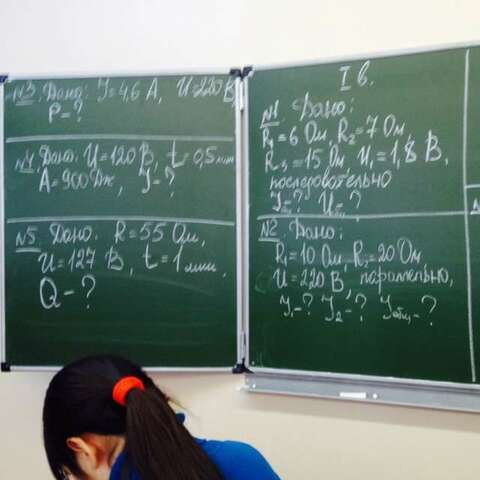 №3. Дано: J=4,6 А, U=220 В,
P=?
№4. Дано: U=120 В, t=0,5 мин
A=900 Дж, J-?
№5. Дано: R=55 Ом,
U=127 В, t=1 мин,
Q-?
I в.
№1. Дано:
R₁=6 Ом, R₂=7 Ом,
R₃=15 Ом U₁=1,8 В,
последовательно
№2. Дано:
R₁=10 Ом, R₂=20 Ом,
U=220 В, параллельно,
J₁-? J₂-? Jобщ-?